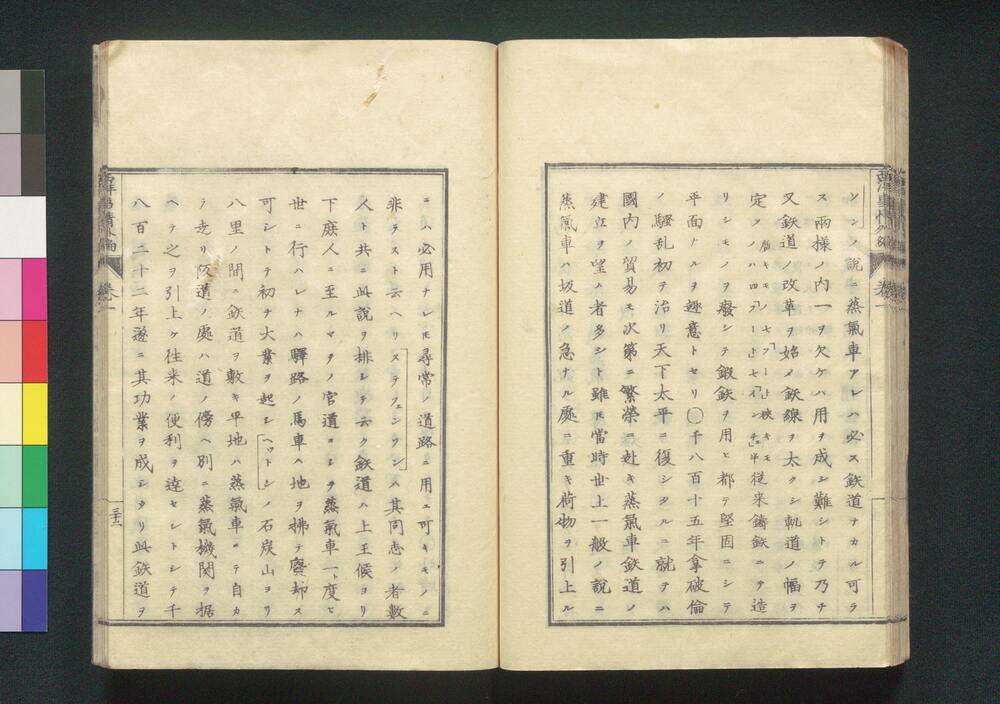 ソンノ説ニ蒸氣車アレハ必ス鉄道ナカル可ラ
ス兩様ノ内一ヲ欠ケハ用ヲ成シ難シトテ乃チ
又鉄道ノ改革ヲ始メ鉄線ヲ太クシ軌道ノ幅ヲ
定メ
従来鑄鉄ニテ造
リシモノヲ廢シテ鍛鉄ヲ用ヒ都テ堅固ニシテ
平面ナルヲ趣意トセリ〇千八百十五年拿破倫
ノ騒乱初テ治リ天下太平ニ復シタルニ就テハ
國内ノ貿易モ次第ニ繁榮ニ赴キ蒸氣車鉄道ノ
建立ヲ望ム者多シト雖𪜈當時世上一般ノ説ニ
蒸氣車ハ坂道ノ急ナル處ニ重キ荷物ヲ引上ル
ニハ必用ナレ𪜈尋常ノ道路ニ用ユ可キモノニ
非ラスト云ヘリステフェンソンハ其同志ノ者數
人ト共ニ此説ヲ排シテ云ク鉄道ハ上王候ヨリ
下庶人ニ至ルマテノ官道ナレヲ蒸氣車一ト度ヒ
世ニ行ハレナハ驛路ノ馬車ハ地ヲ拂テ廢却ス
可シトテ初テ大業ヲ起シヘットンノ石炭山ヨリ
八里ノ間ニ鉄道ヲ敷キ平地ハ蒸氣車ニテ自カ
ラ走リ阪道ノ處ハ道ノ傍ヘ別ニ蒸氣機関ヲ据
ヘテ之ヲ引上ケ往来ノ便利ヲ達セントシテ千
八百二十二年遂ニ其功業ヲ成シタリ此鉄道ヲ
三十二